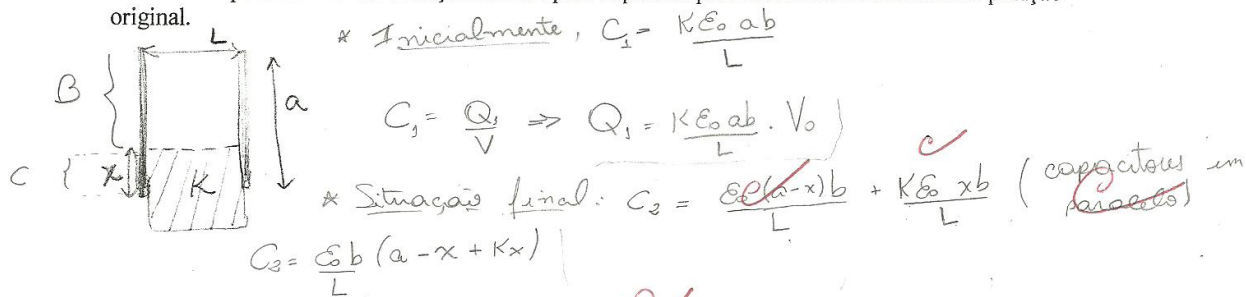 original.
* Inicialmente, C₁ = Kε₀ab / L
L
B
a
C₁ = Q₁ / V ⇒ Q₁ = Kε₀ab / L . V₀
C
x
K
* Situação final: C₂ = ε₀(a-x)b / L + Kε₀ xb / L (capacitores em
paralelo)
C₂ = ε₀b / L (a - x + Kx)